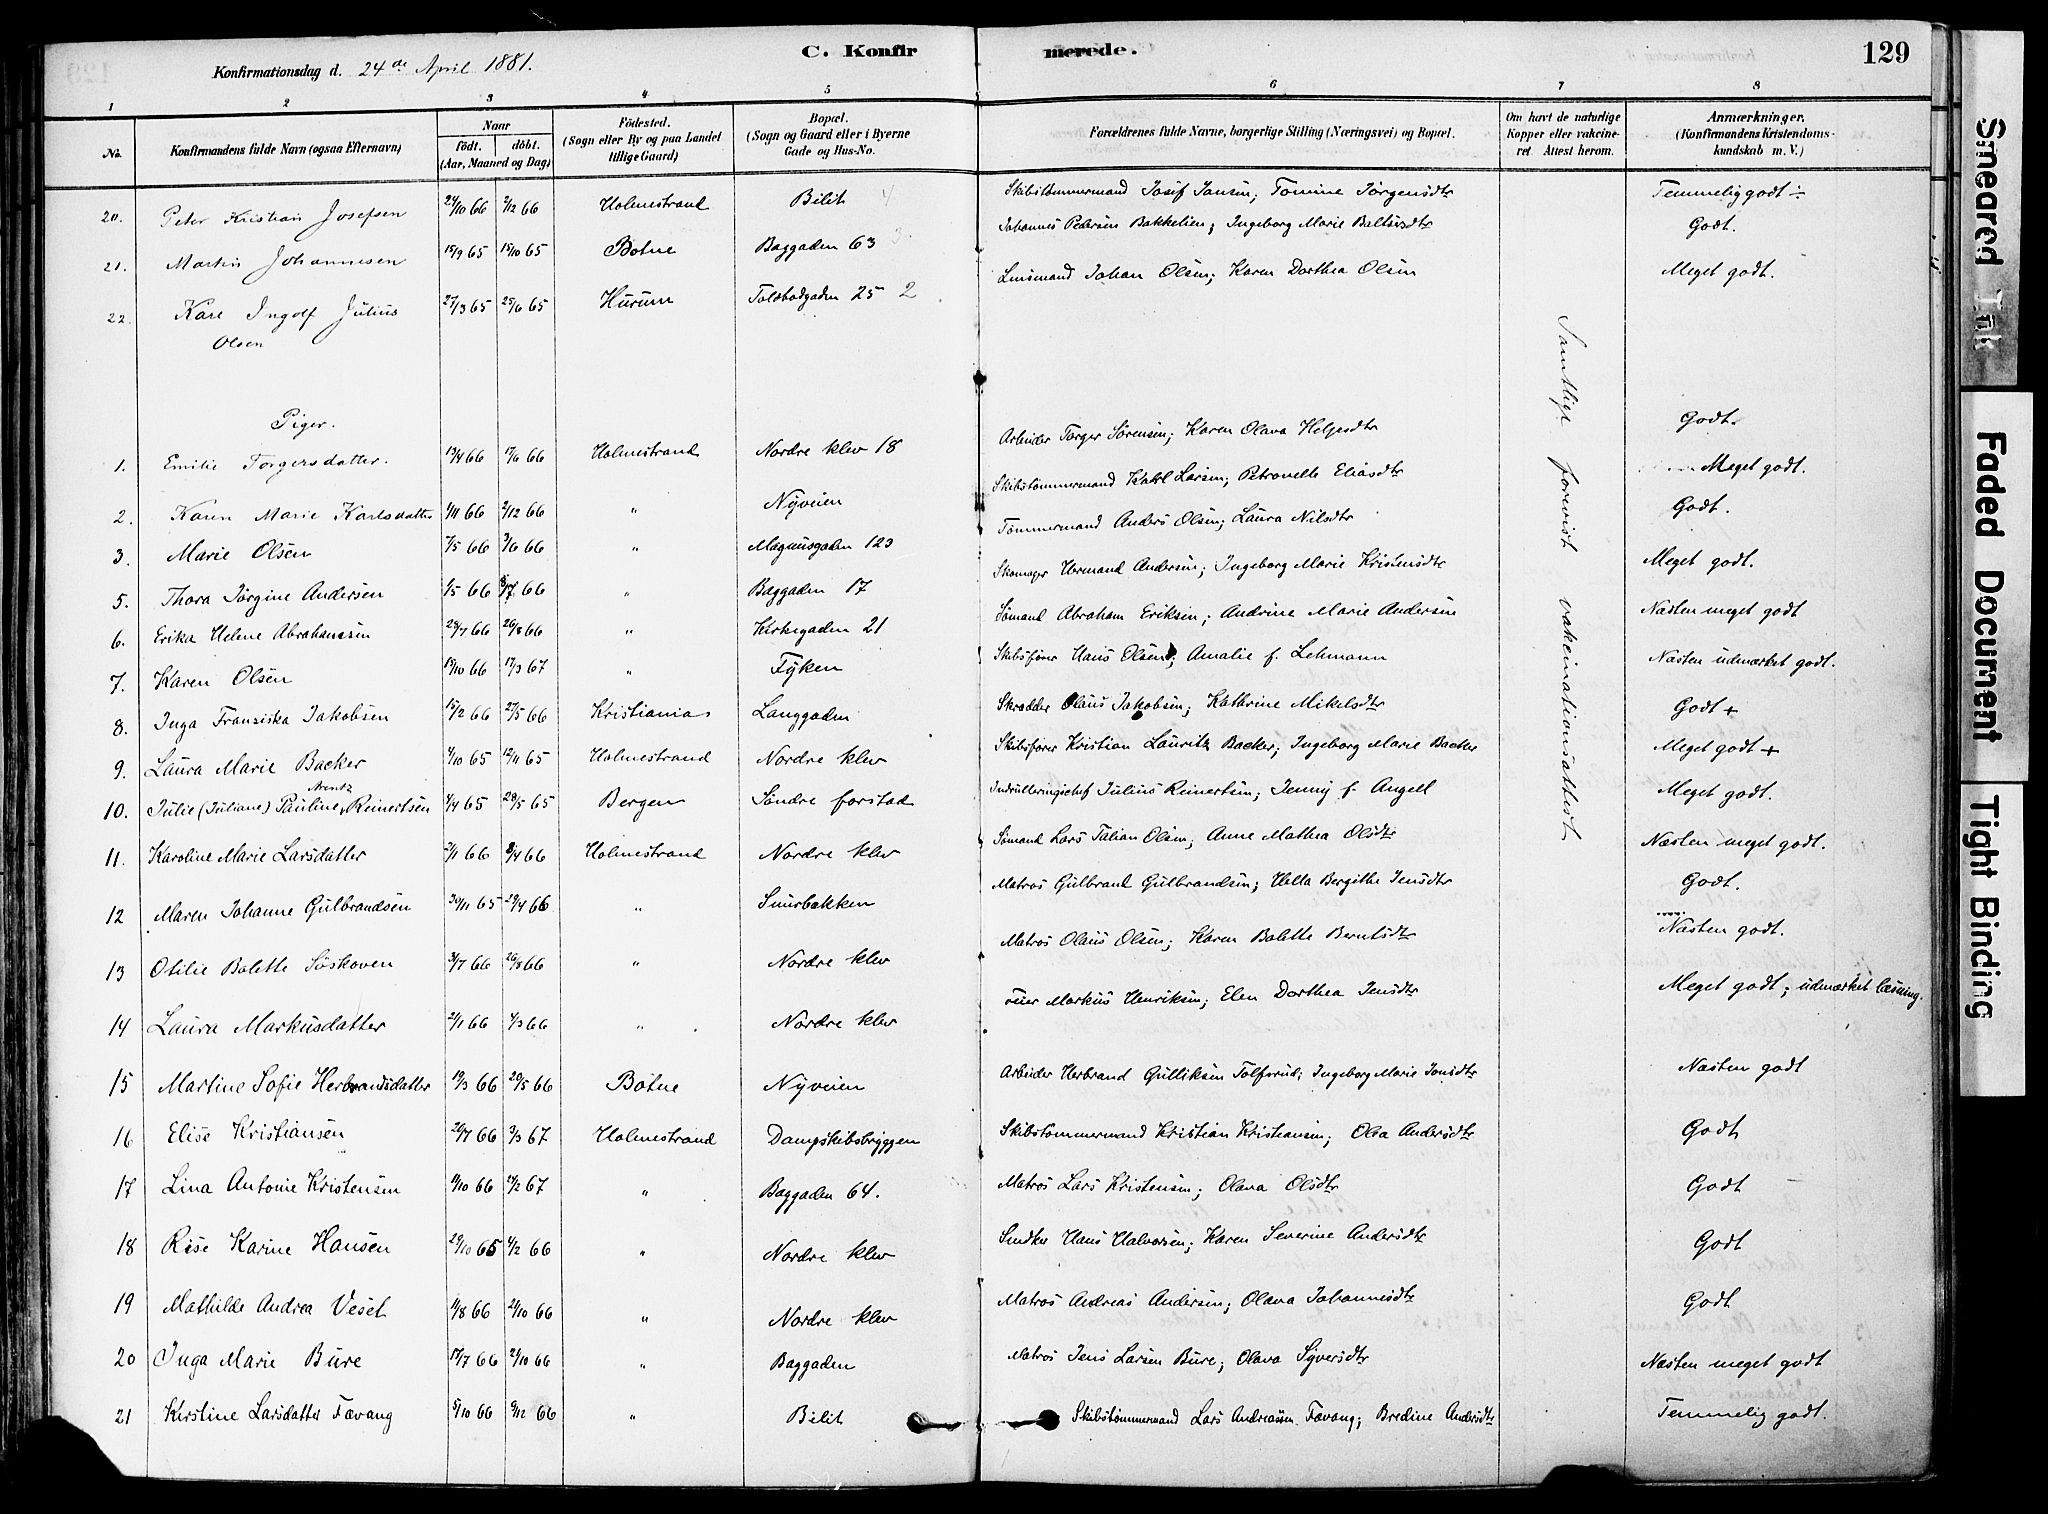 C. Konfirmerede.
129
Konfirmationsdag d. 24de April 1881.
1 2 3 4 5 6 7 8
No. Konfirmandens fulde Navn (ogsaa Efternavn) Naar født. døbt. (Aar, Maaned og Dag) Fødested. (Sogn eller By og paa Landet tillige Gaard) Bopæl. (Sogn og Gaard eller i Byerne Gade og Hus-No. Forældrenes fulde Navne, borgerlige Stilling (Næringsvei) og Bopæl. Om havt de naturlige Kopper eller vakcineret. Attest herom. Anmærkninger. (Konfirmandens Kristendomskundskab m. V.)
20. Peter Kristian Josefsen 24/10 66 2/12 66 Holmestrand Bilit 4 Skibstømmermand Josif Jansen; Tomine Jørgensdtr Temmelig godt ÷
21. Martin Johannesen 15/9 65 15/10 65 Botne Baggaden 63 3 Johannes Pedersen Bakkelien; Ingeborg Marie Baltsersdtr Godt.
22. Karl Ingolf Julius Olsen 27/3 65 25/6 65 Hurum Toldbodgaden 25 2 Linsmand Johan Olsen; Karen Dorthea Olsen Meget godt.
Samtlige forevist vakcinationsattest
Piger.
1. Emilie Torgersdatter. 13/4 66 17/6 66 Holmestrand Nordre klev 18 Arbeider Torger Sørensen; Karen Olava Helgesdtr Godt.
2. Karen Marie Karlsdatter 1/11 66 2/12 66 " Nyveien Skibstømmermand Karl Larsen; Petronelle Eliasdtr Meget godt.
3. Marie Olsen 7/5 66 3/6 66 " Magnusgaden 123 Tømmermand Anders Olsen; Laura Nilsdtr Godt.
5. Thora Jørgine Andersen 1/5 66 66 " Baggaden 17 Skomager Hermand Andersen; Ingeborg Marie Kristensdtr Meget godt.
6. Erika Helene Abrahamsen 28/7 66 26/8 66 " Kirkegaden 21 Sømand Abraham Eriksen; Andrine Marie Andersen Næsten meget godt
7. Karen Olsen 19/10 66 17/3 67 " Tyken Skibsfører Hans Olsen; Amalie f. Lehmann Næsten udmærket godt.
8. Inga Franziska Jakobsen 15/2 66 27/5 66 Kristiania Langgaden Skrædder Olaus Jakobsen; Kathrine Mikelsdtr Godt +
9. Laura Marie Backer 4/10 65 12/11 65 Holmestrand Nordre klev Skibsfører Kristian Lauritz Backer; Ingeborg Marie Backer Meget godt +
10. Julie (Juliane) Pauline Arentz Reinertsen 4/4 65 28/5 65 Bergen Søndre forstad Indrulleringschef Julius Reinertsen; Jenny f. Angell Meget godt.
11. Karoline Marie Larsdatter 2/1 66 8/4 66 Holmestrand Nordre klev Sømand Lars Talian Olsen; Anne Mathea Olsdtr Næsten meget godt.
12 Maren Johanne Gulbrandsen 30/11 65 29/4 66 " Smørbakken Matros Gulbrand Gulbrandsen; Hella Bergithe Jensdtr Godt.
13 Otilie Bolette Søskoven 3/7 66 26/8 66 " Nordre klev Matros Olaus Olsen; Karen Bolette Berntsdtr Næsten godt.
14 Laura Markusdatter 2/1 66 4/3 66 " Nordre klev Markus Henriksen; Elen Dorthea Jensdtr Meget godt; udmærket læsning.
15 Martine Sofie Herbrandsdatter 19/3 66 20/5 66 Botne Nyveien Arbeider Herbrand Gulliksen Tolfsrud; Ingeborg Marie Jonsdtr Næsten godt
16 Elise Kristiansen 26/7 66 3/3 67 Holmestrand Dampskibsbryggen Skibstømmermand Kristian Kristiansen; Olea Andersdtr Godt
17 Lina Antonie Kristensen 9/10 66 17/2 67 " Baggaden 64. Matros Lars Kristensen; Olava Olsdtr Godt
18 Rise Karine Hansen 29/10 65 4/2 66 " Nordre klev Snedker Hans Halvorsen; Karen Severine Andersdtr Godt
19 Mathilde Andrea Veset 11/8 66 21/10 66 " Nordre klev Matros Andreas Andersen; Olava Johannesdtr Godt
20 Inga Marie Bure 17/7 66 21/10 66 " Baggaden Matros Jens Larsen Bure; Olava Syversdtr Næsten meget godt
21 Kirstine Larsdatter Fævang 5/10 66 9/12 66 " Bilit Skibstømmermand Lars Andreassen Fævang; Bredine Andersdtr Temmelig godt.
Smeared Ink
Faded Document
Tight Binding